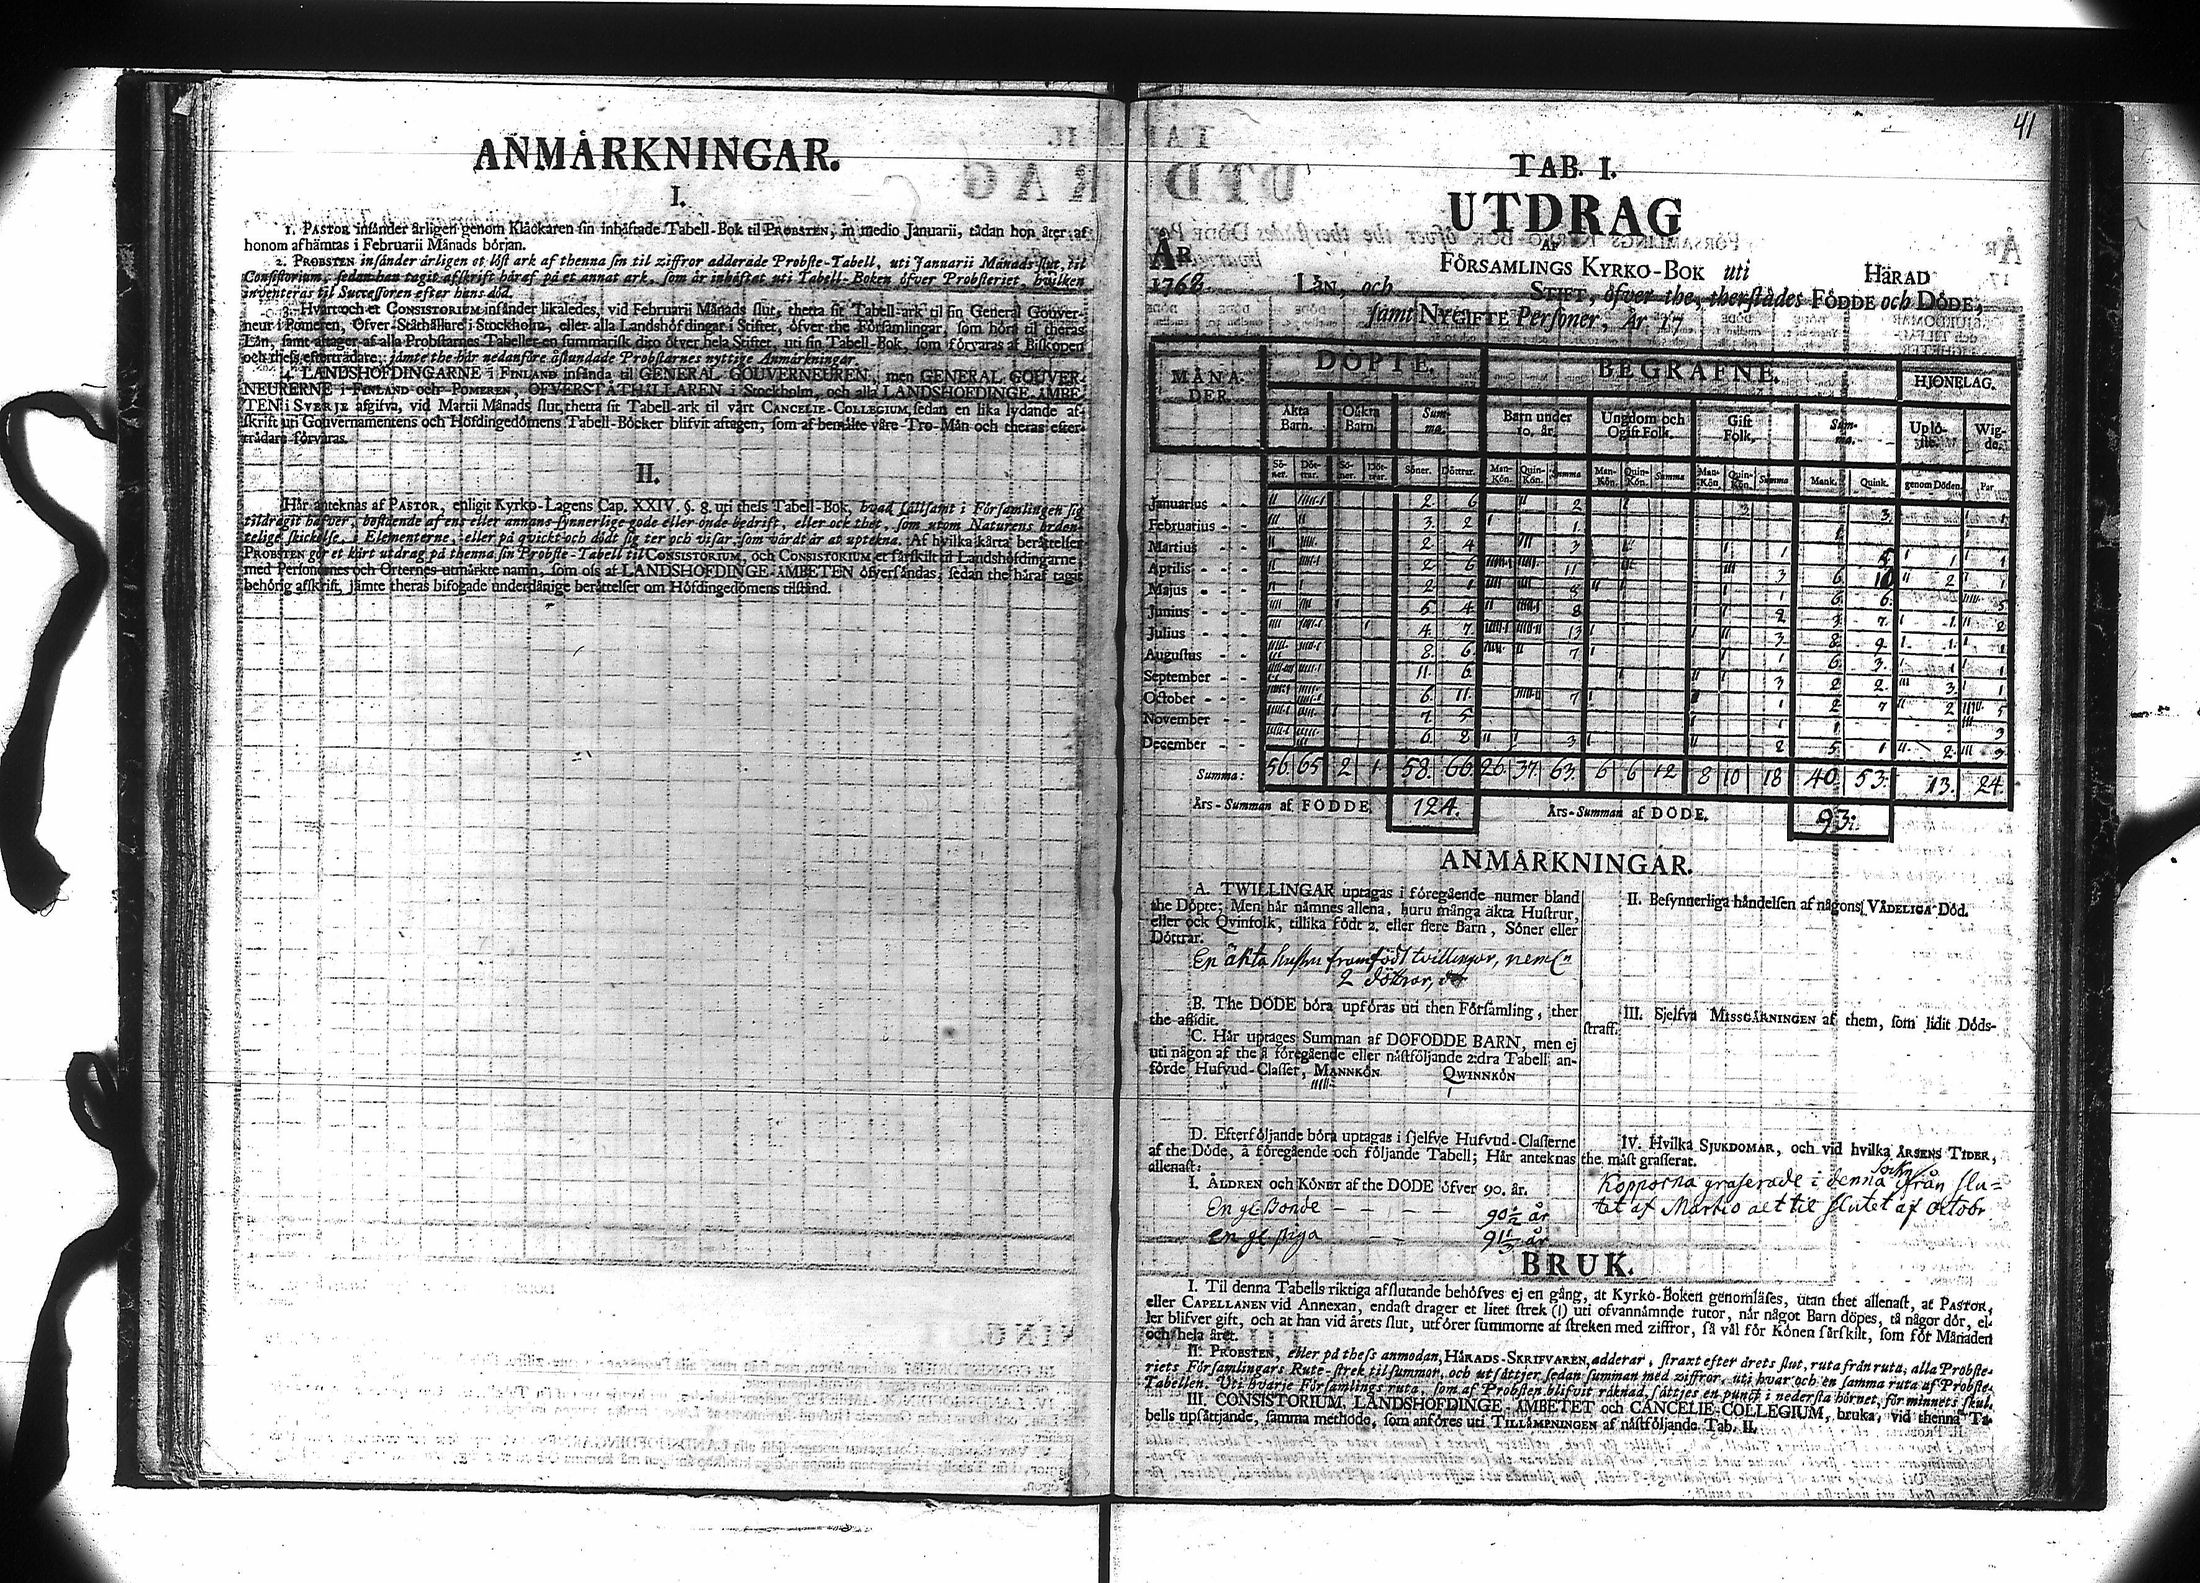 ANMÄRKNINGAR.
I.
1. PASTOR insänder årligen genom Klåckaren sin inhäftade Tabell-Bok til PROBSTEN, in medio Januarii, tådan hon åter af
honom afhämtas i Februarii Månads början.
2. PROBSTEN insänder årligen et löst ark af thenna sin til ziffror adderade Probste-Tabell, uti Januarii Månads slut, til
Consistorium, sedan han tagit afskrift häraf på et annat ark, som är inhäftat uti Tabell-Boken öfver Probsteriet, hvilken
inventeras til Successoren efter hans död.
3. Hvart och et CONSISTORIUM insänder likaledes, vid Februarii Månads slut, thetta sit Tabell-ark til sin General Gouver-
neur i Pomeren, Öfver-Ståthållare i Stockholm, eller alla Landshöfdingar i Stiftet, öfver the Församlingar, som höra til theras
Län, samt aftager af alla Probstarnes Tabeller en summarisk dito öfver hela Stiftet, uti sin Tabell-Bok, som förvaras af Biskopen
och thess efterträdare, jämte the här nedanföre åstundade Probstarnes nyttige Anmärkningar.
4. LANDSHÖFDINGARNE i FINLAND insända til GENERAL GOUVERNEUREN, men GENERAL GOUVER-
NEURERNE i FINLAND och POMEREN, ÖFVERSTÅTHÅLLAREN i Stockholm, och alla LANDSHÖFDINGE-ÄMBE-
TEN i SVERJE afgifva, vid Martii Månads slut, thetta sit Tabell-ark til vårt CANCELIE-COLLEGIUM, sedan en lika lydande af-
skrift uti Gouvernamentens och Höfdingedömens Tabell-Böcker blifvit aftagen, som af bemälte våre Tro-Män och theras efter-
trädare förvaras.
II.
Här anteknas af PASTOR, enligit Kyrko-Lagens Cap. XXIV. §. 8. uti thess Tabell-Bok, hvad sällsamt i Församlingen sig
tildragit hafver, bestående af ens eller annans synnerlige gode eller onde bedrift, eller ock thet, som utom Naturens orden-
telige skickelse, i Elementerne, eller på qvickt och dödt sig ter och visar, som värdt är at uptekna. Af hvilka kårta berättelser
PROBSTEN gör et kårt utdrag på thenna sin Probste-Tabell til CONSISTORIUM, och CONSISTORIUM et särskilt til Landshöfdingarne
med Personernes och Orternes utmärkte namn, som oss af LANDSHÖFDINGE-ÄMBETEN öfversändas, sedan the häraf tagit
behörig afskrift, jämte theras bifogade underdånige berättelser om Höfdingedömens tilstånd.
41
TAB. I.
UTDRAG
AF
FÖRSAMLINGS KYRKO-BOK uti HÄRAD
ÅR
1768. LÄN, och STIFT, öfver the, therstädes FÖDDE och DÖDE,
samt NYGIFTE Personer, År 17
MÅNA-DER. DÖPTE. BEGRAFNE. HJONELAG.
Äkta Barn. Oäkta Barn. Sum-ma. Barn under 10. år. Ungdom och Ogift Folk. Gift Folk. Sum-ma. Uplö-ste. Wig-de.
Sö-ner. Döt-trar. Sö-ner. Döt-trar. Söner. Döttrar. Man-Kön. Quin-Kön. Summa Man-Kön. Quin-Kön. Summa Man-Kön. Quin-Kön. Summa Mank. Quink. genom Döden. Par
Januarius 2 6 2 3
Februarius 3 2 1 1
Martius 2 4 3 1 5 1 1
Aprilis 2 6 11 3 6 10 2 1
Majus 2 1 8 1 6 6 5
Junius 5 4 8 2 3 7 1 2
Julius 4 7 13 3 8 9 1 1
Augustus 8 6 7 1 6 3 1 1
September 11 6 3 2 2 3 1
October 6 11 7 1 2 7 2 5
November 7 5 1 1 3
December 6 8 3 2 5 1 2 3
Summa: 56. 65 2 1 58. 66. 26. 37. 63. 6 6 12 8 10 18 40 53. 13. 24.
Års-Summan af FÖDDE. 124. Års-Summan af DÖDE. 93.
ANMÄRKNINGAR.
A. TWILLINGAR uptagas i föregående numer bland
the Döpte; Men här nämnes allena, huru många äkta Hustrur,
eller ock Qvinfolk, tillika födt 2. eller flere Barn, Söner eller
Döttrar.
En äkta hustru framfödt tvillingar, neml
2 döttrar,
B. The DÖDE böra upföras uti then Församling, ther
the aflidit.
C. Här uptages Summan af DÖFÖDDE BARN, men ej
uti någon af the å föregående eller nästföljande 2:dra Tabell an-
förde Hufvud-Classer, MANNKÖN QWINNKÖN
D. Efterföljande böra uptagas i sjelfve Hufvud-Classerne
af the Döde, å föregående och följande Tabell; Här anteknas
allenast:
I. ÅLDREN och KÖNET af the DÖDE öfver 90. år.
En gl Bonde — — — 90 1/2 år
en gl piga — — 91 1/3 år
II. Besynnerliga händelsen af någons VÅDELIGA Död.
III. Sjelfva MISSGÄRNINGEN af them, som lidit Döds-
straff.
IV. Hvilka SJUKDOMAR, och vid hvilka ÅRSENS TIDER,
the mäst grasserat.
Kopporna graserade i denna sokn ifrån slu=
tet af Martio alt til slutet af octobr
BRUK.
I. Til denna Tabells riktiga afslutande behöfves ej en gång, at Kyrko-Boken genomläses, utan thet allenast, at PASTOR,
eller CAPELLANEN vid Annexan, endast drager et litet strek (I) uti ofvannämnde rutor, när något Barn döpes, tå någor dör, el-
ler blifver gift, och at han vid årets slut, utförer summorne af streken med ziffror, så väl för Könen särskilt, som för Månaden
och hela året.
II. PROBSTEN, eller på thess anmodan, HÄRADS-SKRIFVAREN, adderar, straxt efter årets slut, ruta från ruta, alla Probste-
riets Församlingars Rute-strek til summor, och utsättjer sedan summan med ziffror, uti hvar och en samma ruta af Probste-
Tabellen. Uti hvarje Församlings ruta, som af Probsten blifvit räknad, sättjes en punct i nedersta hörnet, för minnets skul.
III. CONSISTORIUM, LANDSHÖFDINGE-ÄMBETET och CANCELIE-COLLEGIUM, bruka, vid thenna Ta-
bells upsättjande, samma methode, som anföres uti TILLÄMPNINGEN af nästföljande Tab. II.